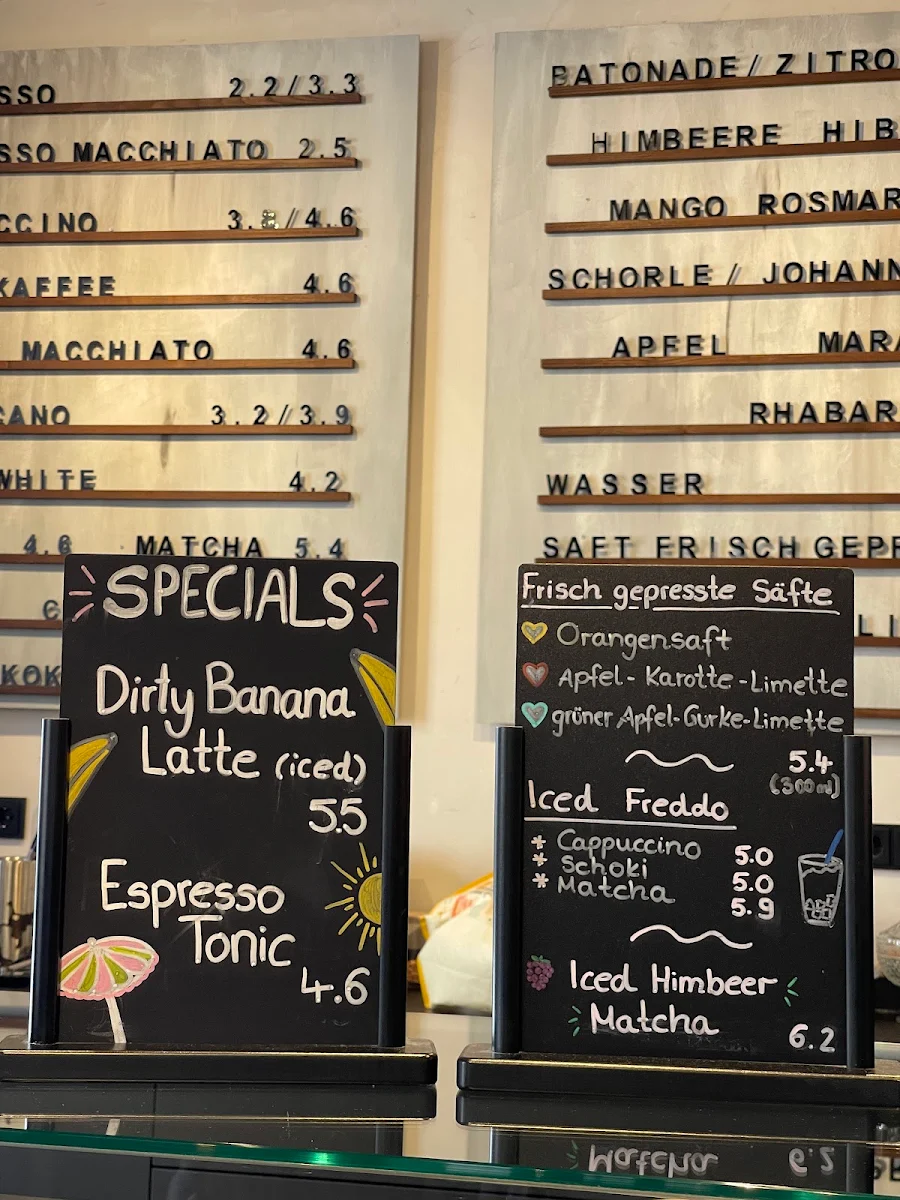 2.2/3.3
MACCHIATO 2.5
4.6
4.6
MACCHIATO 4.6
3.2/3.9
4.2
4.6 MATCHA 5.4
BATONADE/ZITRO
HIMBEERE HIB
MANGO ROSMAR
SCHORLE / JOHANN
APFEL MARA
RHABAR
WASSER
SAFT FRISCH GEPR
SPECIALS
Dirty Banana
Latte (iced)
5.5
Espresso
Tonic
4.6
Frisch gepresste Säfte
Orangensaft
Apfel-Karotte-Limette
grüner Apfel-Gurke-Limette
5.4
(300ml)
Iced Freddo
* Cappuccino 5.0
* Schoki 5.0
* Matcha 5.9
Iced Himbeer
Matcha
6.2